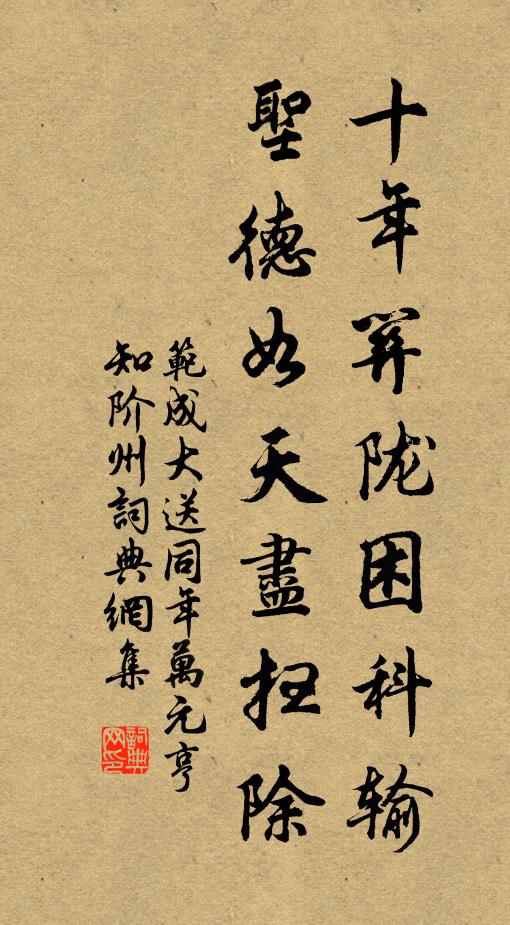 十年笄陇困科输
聖德如天盡扫除
範成大送同年萬元亨
知阶州詞典網集
詞典
网印